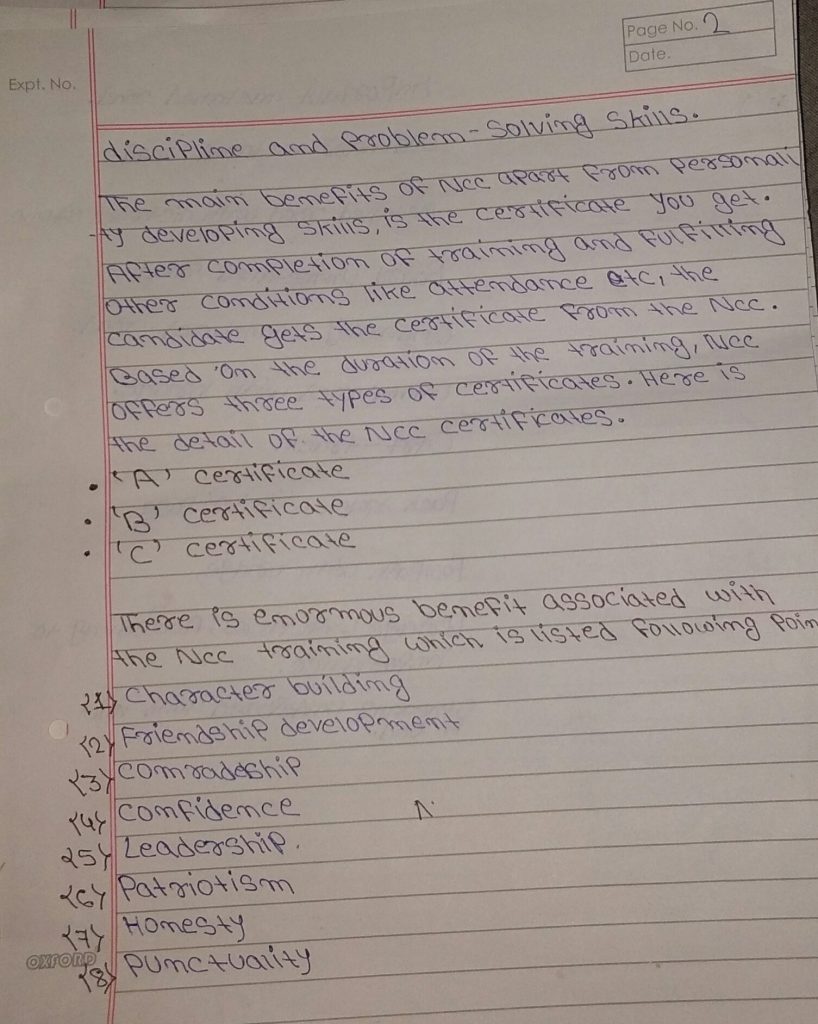 Page No. 2
Date.
Expt. No.
discipline and Problem-solving skills.
The main benefits of NCC apart from personali
ty developing skills, is the certificate you get.
After completion of training and fulfilling
other conditions like attendance etc, the
candidate gets the certificate from the NCC.
Based on the duration of the training, NCC
offers three types of certificates. Here is
the detail of the NCC certificates.
• 'A' certificate
• 'B' certificate
• 'C' certificate
There is enormous benefit associated with
the NCC training which is listed following poin
{1} Character building
{2} Friendship development
{3} comradeship
{4} confidence
{5} Leadership.
{6} Patriotism
{7} Honesty
{8} punctuality
OXFORD